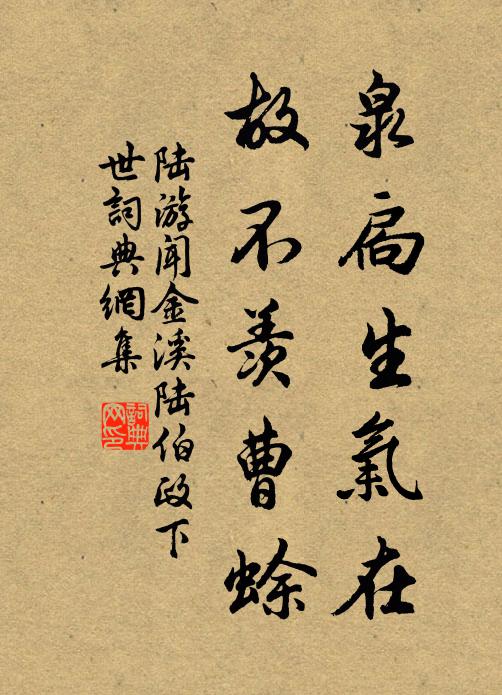 泉扃生氣在
故不羨曹蜍
陸游聞金溪陸伯政下
世詞典網集
詞典
网印